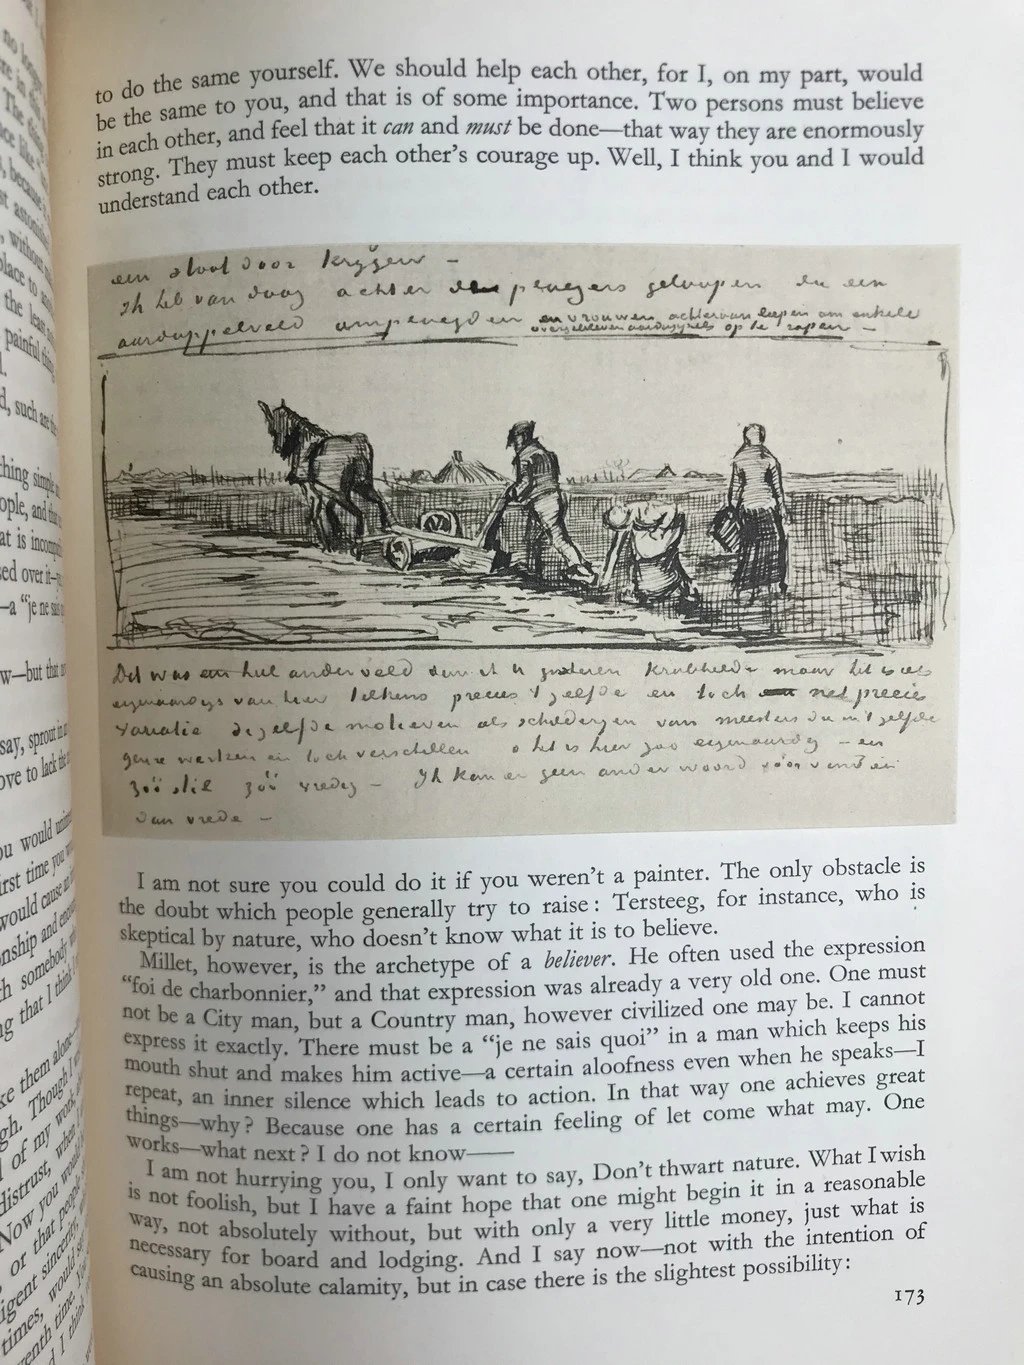 to do the same yourself. We should help each other, for I, on my part, would
be the same to you, and that is of some importance. Two persons must believe
in each other, and feel that it can and must be done—that way they are enormously
strong. They must keep each other's courage up. Well, I think you and I would
understand each other.
een sloot door krijgen –
Ik heb van daag achter de ploegers geloopen die een
aardappelveld omploegden en vrouwen achteraan liepen om enkele
overgebleven aardappels op te rapen –
Dit was een heel ander veld dan ik U gisteren krabbelde maar het is iets
eigenaardigs van hier telkens precies 't zelfde en toch net precies
variatie dezelfde motieven als schilderijen van meesters die in 't zelfde
genre werken en toch verschillen o het is hier zoo eigenaardig – en
zóó stil zóó vredig – Ik kan er geen ander woord voor vinden
dan vrede –
I am not sure you could do it if you weren't a painter. The only obstacle is
the doubt which people generally try to raise: Tersteeg, for instance, who is
skeptical by nature, who doesn't know what it is to believe.
Millet, however, is the archetype of a believer. He often used the expression
"foi de charbonnier," and that expression was already a very old one. One must
not be a City man, but a Country man, however civilized one may be. I cannot
express it exactly. There must be a "je ne sais quoi" in a man which keeps his
mouth shut and makes him active—a certain aloofness even when he speaks—I
repeat, an inner silence which leads to action. In that way one achieves great
things—why? Because one has a certain feeling of let come what may. One
works—what next? I do not know——
I am not hurrying you, I only want to say, Don't thwart nature. What I wish
is not foolish, but I have a faint hope that one might begin it in a reasonable
way, not absolutely without, but with only a very little money, just what is
necessary for board and lodging. And I say now—not with the intention of
causing an absolute calamity, but in case there is the slightest possibility:
173